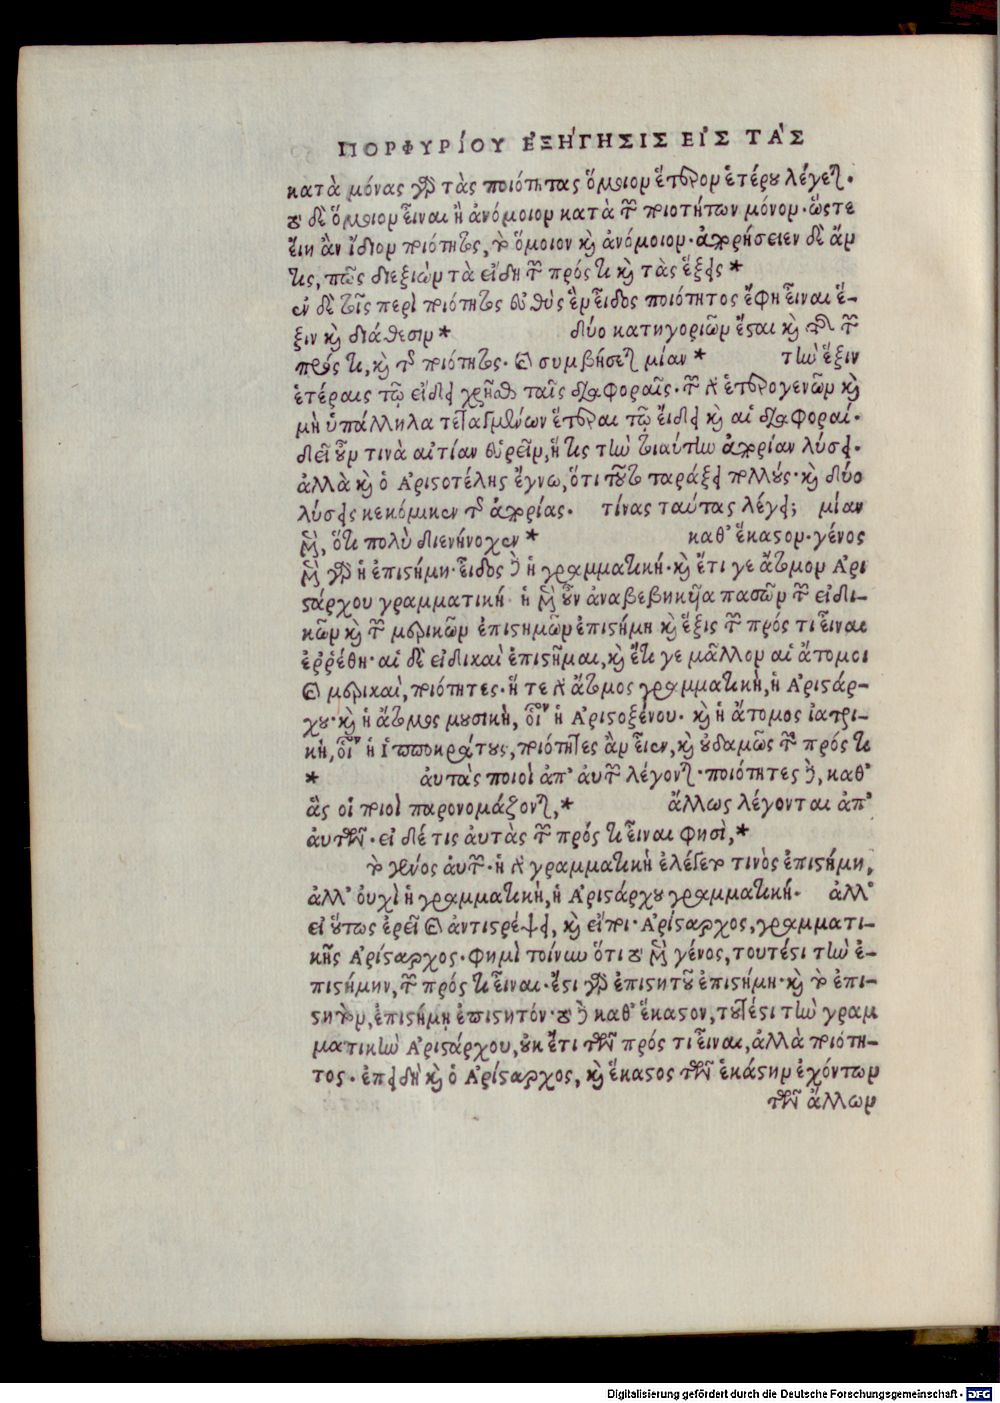 ΠΟΡΦΥΡΊΟΥ ἘΞΉΓΗΣΙΣ ΕἸΣ ΤΆΣ
κατὰ μόνας γὰρ τὰς ποιότητας ὅμοιον ἕτερον ἑτέρου λέγεται.
οὐ δὲ ὅμοιον εἶναι ἢ ἀνόμοιον κατὰ τῶν ποιοτήτων μόνον. ὥστε
εἴη ἂν ἴδιον ποιότητος, τὸ ὅμοιον καὶ ἀνόμοιον. ἀπορήσειεν δὲ ἄν
τις, πῶς διεξιὼν τὰ εἴδη τῶν πρός τι καὶ τὰς ἕξεις *
ἐν δὲ τοῖς περὶ ποιότητος εὐθὺς ἓν εἶδος ποιότητος ἔφη εἶναι ἕ-
ξιν καὶ διάθεσιν * δύο κατηγοριῶν ἔσται καὶ τῶν
πρός τι, καὶ τῆς ποιότητος. καὶ συμβήσεται μίαν * τὴν ἕξιν
ἑτέραις τῷ εἴδει χρῆσθαι ταῖς διαφοραῖς. τῶν γὰρ ἑτερογενῶν καὶ
μὴ ὑπάλληλα τεταγμένων ἕτεραι τῷ εἴδει καὶ αἱ διαφοραί.
δεῖ οὖν τινὰ αἰτίαν εὑρεῖν, ἥ τις τὴν τοιαύτην ἀπορίαν λύσει.
ἀλλὰ καὶ ὁ Ἀριστοτέλης ἔγνω, ὅτι τοῦτο ταράξει πολλούς. καὶ δύο
λύσεις κεκόμικεν τῆς ἀπορίας. τίνας ταύτας λέγει; μίαν
μὲν, ὅτι πολὺ διενήνοχεν * καθ' ἕκαστον. γένος
μὲν γὰρ ἡ ἐπιστήμη. εἶδος δὲ ἡ γραμματική. καὶ ἔτι γε ἄτομον Ἀρι
στάρχου γραμματική ἡ μὲν οὖν ἀναβεβηκυῖα πασῶν τῶν εἰδι-
κῶν καὶ τῶν μερικῶν ἐπιστημῶν ἐπιστήμη καὶ ἕξις τῶν πρός τι εἶναι
ἐῤῥέθη. αἱ δὲ εἰδικαὶ ἐπιστῆμαι, καὶ ἔτι γε μᾶλλον αἱ ἄτομοι
καὶ μερικαὶ, ποιότητες. ἥ τε γὰρ ἄτομος γραμματικὴ, ἡ Ἀριστάρ-
χου. καὶ ἡ ἄτομος μουσικὴ, οἷον ἡ Ἀριστοξένου. καὶ ἡ ἄτομος ἰατρι-
κὴ, οἷον ἡ Ἱπποκράτους, ποιότητες ἂν εἶεν, καὶ οὐδαμῶς τῶν πρός τι
* αὐτὰς ποιοὶ ἀπ' αὐτῶν λέγονται. ποιότητες δὲ, καθ'
ἃς οἱ ποιοὶ παρονομάζονται, * ἄλλως λέγονται ἀπ'
αὐτῶν. εἰ δέ τις αὐτὰς τῶν πρός τι εἶναι φησὶ, *
τὸ γένος αὐτῶν. ἡ γὰρ γραμματικὴ ἐλέγετο τινὸς ἐπιστήμη,
ἀλλ' οὐχὶ ἡ γραμματικὴ, ἡ Ἀριστάρχου γραμματική. ἀλλ'
εἰ οὕτως ἐρεῖ καὶ ἀντιστρέψει, καὶ εἴποι. Ἀρίσταρχος, γραμματι-
κῆς Ἀρίσταρχος. φημὶ τοίνυν ὅτι οὐ μὲν γένος, τουτέστι τὴν ἐ-
πιστήμην, τῶν πρός τι εἶναι. ἔστι γὰρ ἐπιστητοῦ ἐπιστήμη. καὶ τὸ ἐπι-
στητὸν, ἐπιστήμῃ ἐπιστητόν. οὐ δὲ καθ' ἕκαστον, τουτέστι τὴν γραμ
ματικὴν Ἀριστάρχου, οὐκ ἔτι τῶν πρός τι εἶναι, ἀλλὰ ποιότη-
τος. ἐπειδὴ καὶ ὁ Ἀρίσταρχος, καὶ ἕκαστος τῶν ἑκάστην ἐχόντων
τῶν ἄλλων
Digitalisierung gefördert durch die Deutsche Forschungsgemeinschaft - DFG